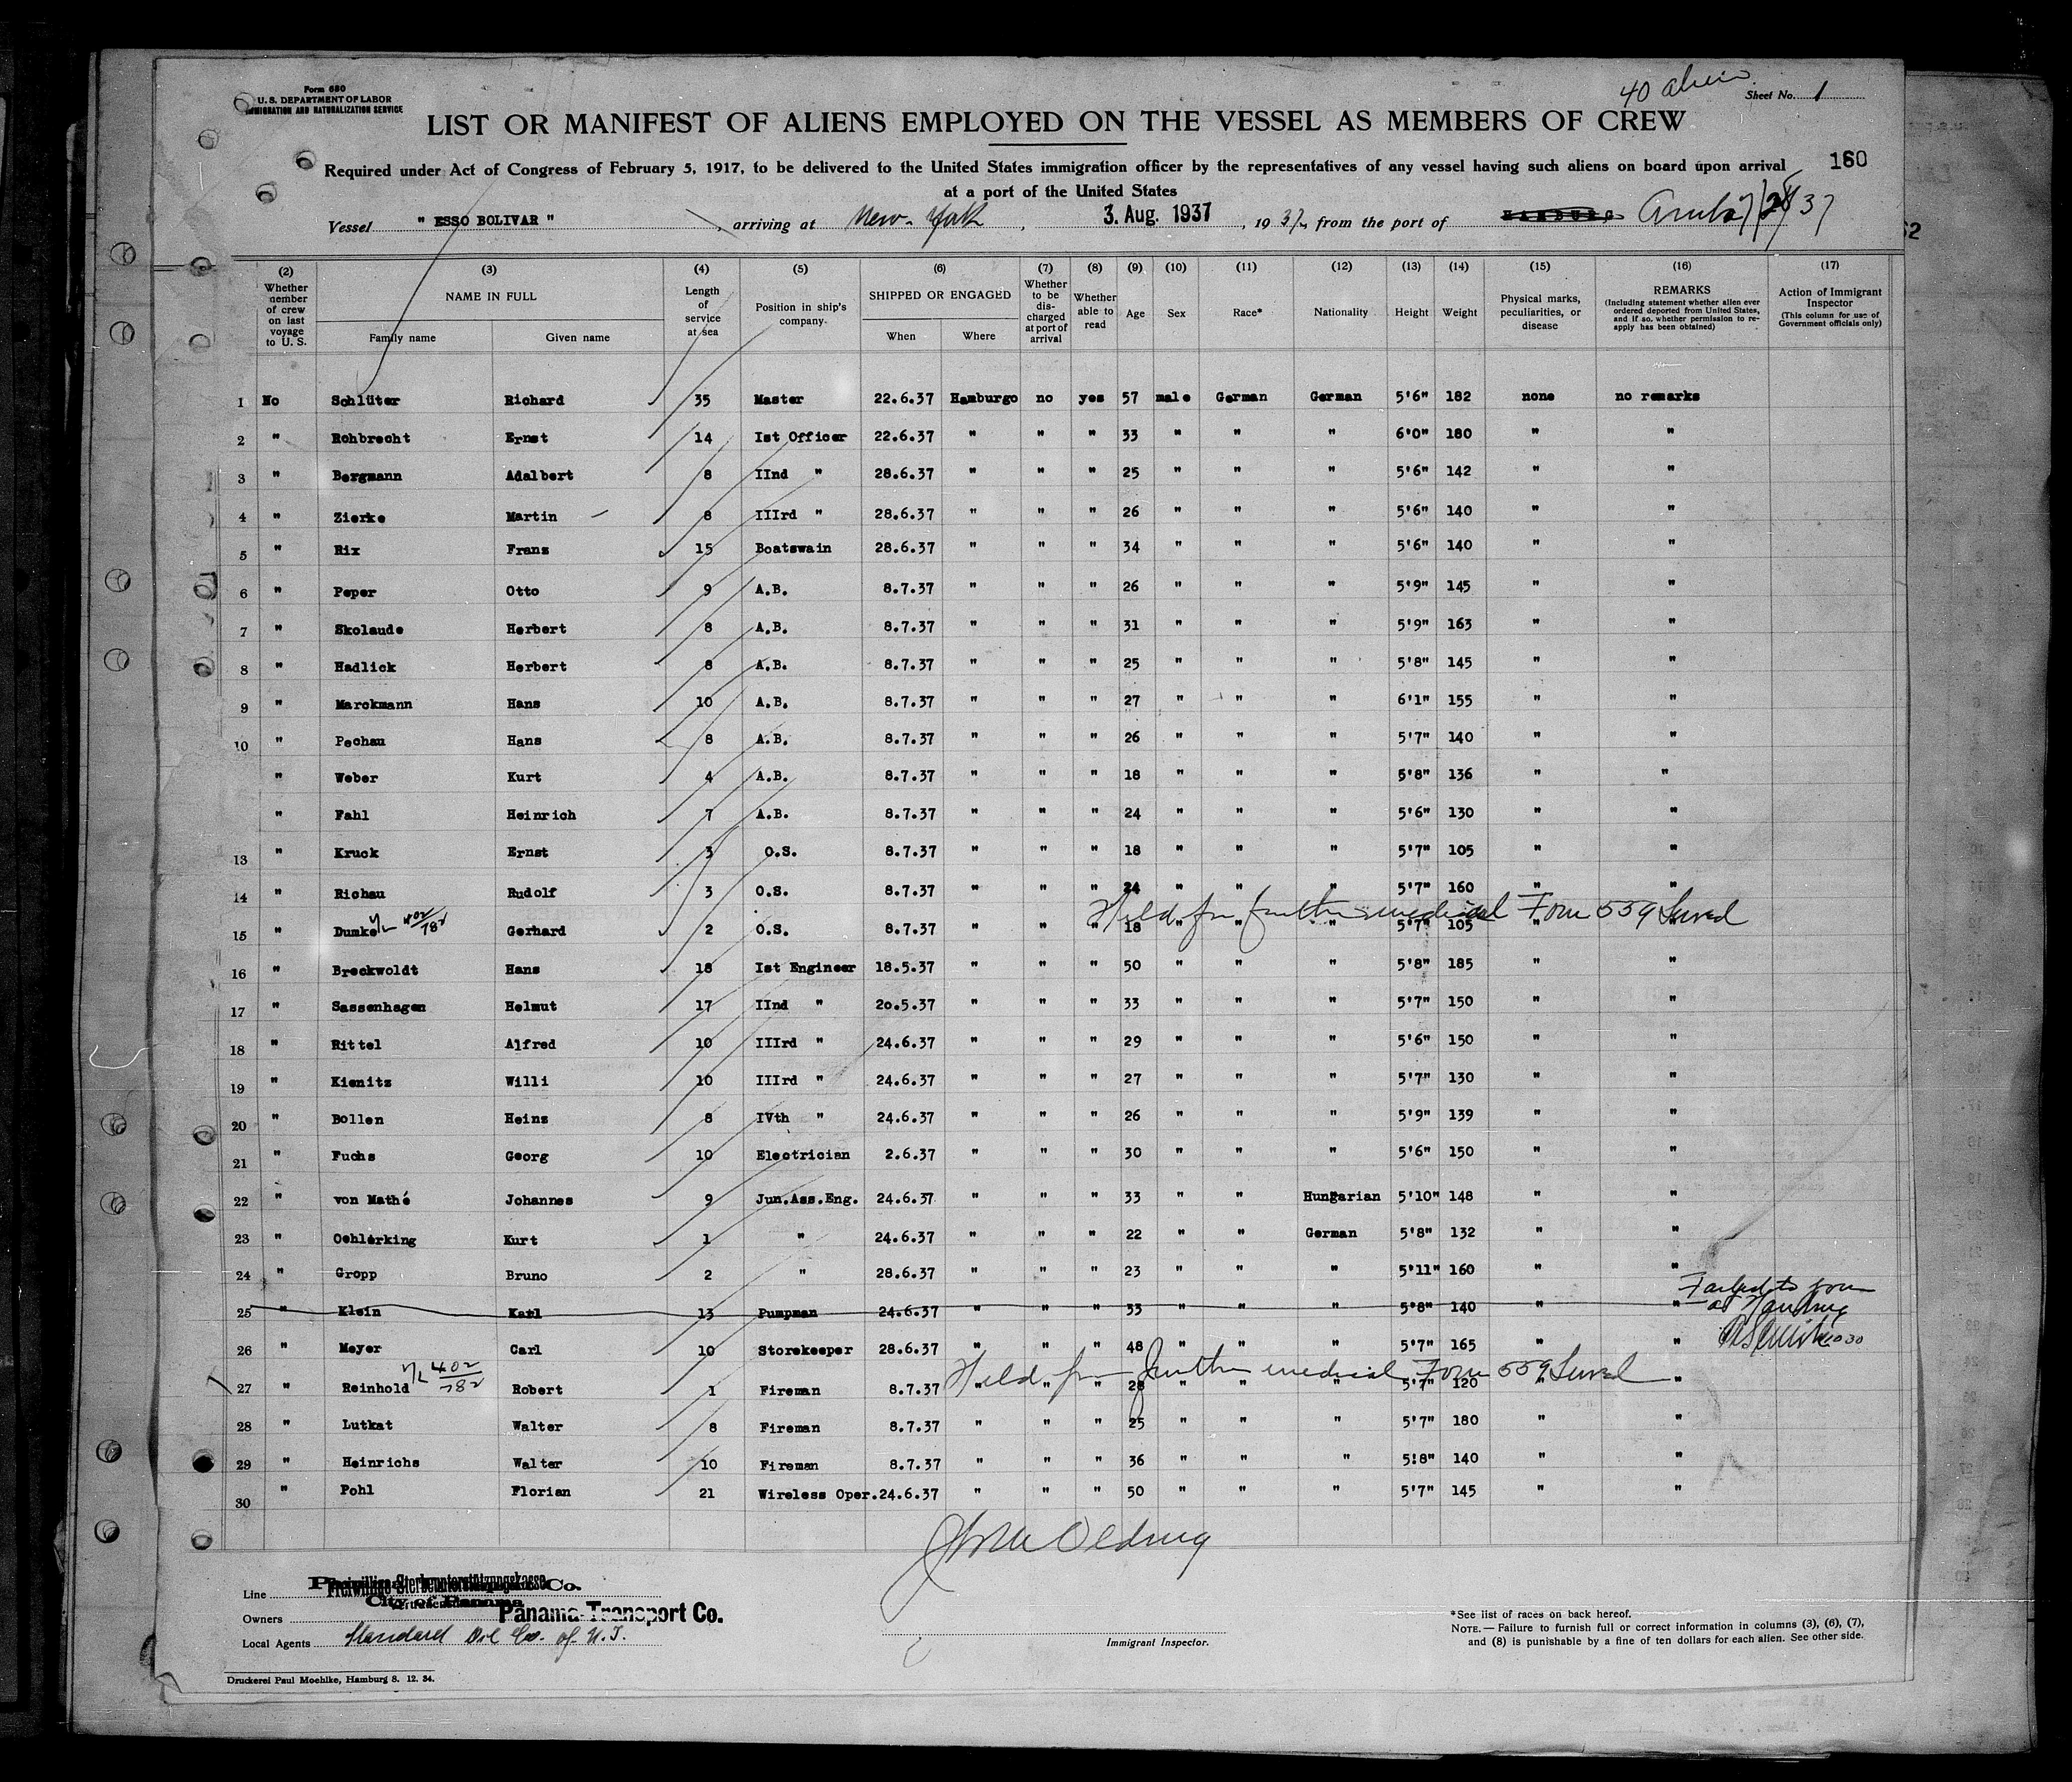 Form 680
U. S. DEPARTMENT OF LABOR
IMMIGRATION AND NATURALIZATION SERVICE
40 alien
Sheet No. 1
LIST OR MANIFEST OF ALIENS EMPLOYED ON THE VESSEL AS MEMBERS OF CREW
Required under Act of Congress of February 5, 1917, to be delivered to the United States immigration officer by the representatives of any vessel having such aliens on board upon arrival
160
at a port of the United States
Vessel " ESSO BOLIVAR " , arriving at New-York , 3. Aug. 1937 , 19 37, from the port of HAMBURG Aruba 7/28/37
(2) (3) (4) (5) (6) (7) (8) (9) (10) (11) (12) (13) (14) (15) (16) (17)
Whether member of crew on last voyage to U. S. NAME IN FULL Family name Given name Length of service at sea Position in ship's company. SHIPPED OR ENGAGED When Where Whether to be discharged at port of arrival Whether able to read Age Sex Race* Nationality Height Weight Physical marks, peculiarities, or disease REMARKS (Including statement whether alien ever ordered deported from United States, and if so, whether permission to reapply has been obtained) Action of Immigrant Inspector (This column for use of Government officials only)
1 No Schlüter Richard 35 Master 22.6.37 Hamburgo no yes 57 male German German 5'6" 182 none no remarks
2 " Rohbrecht Ernst 14 Ist Officer 22.6.37 " " " 33 " " " 6'0" 180 " "
3 " Bergmann Adalbert 8 IInd " 28.6.37 " " " 25 " " " 5'6" 142 " "
4 " Zierke Martin 8 IIIrd " 28.6.37 " " " 26 " " " 5'6" 140 " "
5 " Rix Frans 15 Boatswain 28.6.37 " " " 34 " " " 5'6" 140 " "
6 " Peper Otto 9 A.B. 8.7.37 " " " 26 " " " 5'9" 145 " "
7 " Skolaude Herbert 8 A.B. 8.7.37 " " " 31 " " " 5'9" 163 " "
8 " Hadlick Herbert 8 A.B. 8.7.37 " " " 25 " " " 5'8" 145 " "
9 " Marckmann Hans 10 A.B. 8.7.37 " " " 27 " " " 6'1" 155 " "
10 " Pechau Hans 8 A.B. 8.7.37 " " " 26 " " " 5'7" 140 " "
" Weber Kurt 4 A.B. 8.7.37 " " " 18 " " " 5'8" 136 " "
" Fahl Heinrich 7 A.B. 8.7.37 " " " 24 " " " 5'6" 130 " "
13 " Kruck Ernst 3 O.S. 8.7.37 " " " 18 " " " 5'7" 105 " "
14 " Richau Rudolf 3 O.S. 8.7.37 " " " 24 " " " 5'7" 160 " "
Held for further medical Form 559 Served
15 " Dumke 402/782 Gerhard 2 O.S. 8.7.37 " " " 18 " " " 5'7" 105 " "
16 " Breckwoldt Hans 18 Ist Engineer 18.5.37 " " " 50 " " " 5'8" 185 " "
17 " Sassenhagen Helmut 17 IInd " 20.5.37 " " " 33 " " " 5'7" 150 " "
18 " Rittel Alfred 10 IIIrd " 24.6.37 " " " 29 " " " 5'6" 150 " "
19 " Kienitz Willi 10 IIIrd " 24.6.37 " " " 27 " " " 5'7" 130 " "
20 " Bollen Heinz 8 IVth " 24.6.37 " " " 26 " " " 5'9" 139 " "
21 " Fuchs Georg 10 Electrician 2.6.37 " " " 30 " " " 5'6" 150 " "
22 " von Mathé Johannes 9 Jun.Ass.Eng. 24.6.37 " " " 33 " " Hungarian 5'10" 148 " "
23 " Oehlerking Kurt 1 " 24.6.37 " " " 22 " " German 5'8" 132 " "
24 " Gropp Bruno 2 " 28.6.37 " " " 23 " " " 5'11" 160 " "
25 " Klein Karl 13 Pumpman 24.6.37 " " " 33 " " " 5'8" 140 " " Failed to join at Hamburg
26 " Meyer Carl 10 Storekeeper 28.6.37 " " " 48 " " " 5'7" 165 " "
Held for further medical Form 559 Served
27 " Reinhold 402/782 Robert 1 Fireman 8.7.37 " " " 28 " " " 5'7" 120 " "
28 " Lutkat Walter 8 Fireman 8.7.37 " " " 25 " " " 5'7" 180 " "
29 " Heinrichs Walter 10 Fireman 8.7.37 " " " 36 " " " 5'8" 140 " "
30 " Pohl Florian 21 Wireless Oper. 24.6.37 " " " 50 " " " 5'7" 145 " "
Line Freiwillige Sterbeunterstützungskasse Co.
City of Panama
Owners Panama-Transport Co.
Local Agents Standard Oil Co. of N.J.
Immigrant Inspector.
*See list of races on back hereof.
NOTE.—Failure to furnish full or correct information in columns (3), (6), (7),
and (8) is punishable by a fine of ten dollars for each alien. See other side.
Druckerei Paul Moehlke, Hamburg 8. 12. 34.